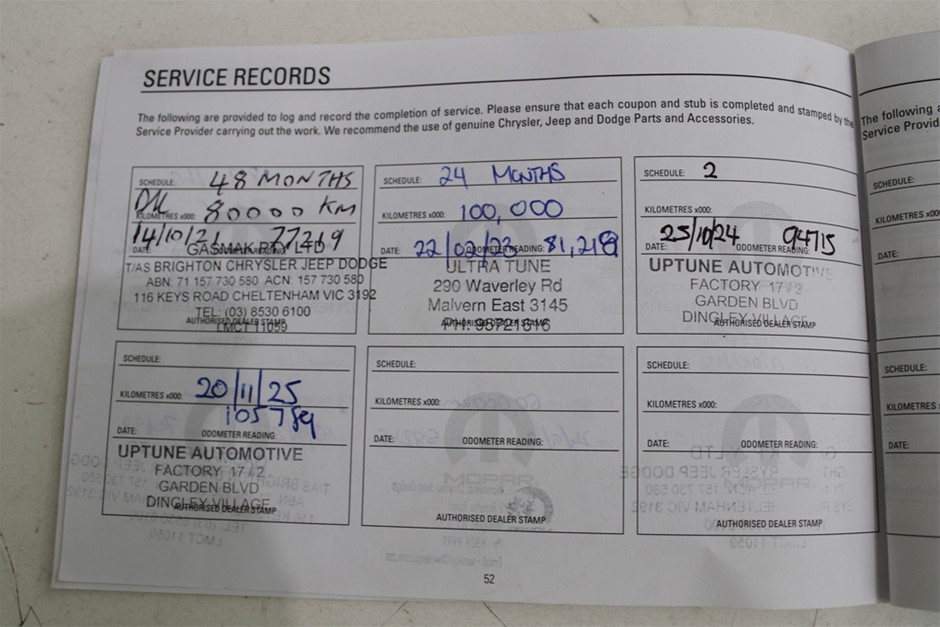 SERVICE RECORDS
The following are provided to log and record the completion of service. Please ensure that each coupon and stub is completed and stamped by the
Service Provider carrying out the work. We recommend the use of genuine Chrysler, Jeep and Dodge Parts and Accessories.
SCHEDULE: 48 MONTHS
KILOMETRES x000: 80000 KM
14/10/21 77219
DATE:
GASMAK PTY LTD
T/AS BRIGHTON CHRYSLER JEEP DODGE
ABN: 71 157 730 580 ACN: 157 730 580
116 KEYS ROAD CHELTENHAM VIC 3192
TEL: (03) 8530 6100
AUTHORISED DEALER STAMP
LMCT 11059
SCHEDULE: 24 MONTHS
KILOMETRES x000: 100,000
DATE: 22/02/23 ODOMETER READING: 81,218
ULTRA TUNE
290 Waverley Rd
Malvern East 3145
AUTHORISED DEALER STAMP
SCHEDULE: 2
KILOMETRES x000:
DATE: 25/10/24 ODOMETER READING: 94715
UPTUNE AUTOMOTIVE
FACTORY 17 / 2
GARDEN BLVD
DINGLEY VILLAGE
AUTHORISED DEALER STAMP
SCHEDULE:
KILOMETRES x000: 20/11/25
105789
DATE: ODOMETER READING:
UPTUNE AUTOMOTIVE
FACTORY 17 / 2
GARDEN BLVD
DINGLEY VILLAGE
AUTHORISED DEALER STAMP
SCHEDULE:
KILOMETRES x000:
DATE: ODOMETER READING:
AUTHORISED DEALER STAMP
SCHEDULE:
KILOMETRES x000:
DATE: ODOMETER READING:
AUTHORISED DEALER STAMP
52
The following
Service Provid
SCHEDULE:
KILOMETRES x000
DATE:
SCHEDULE:
KILOMETRES
DATE: